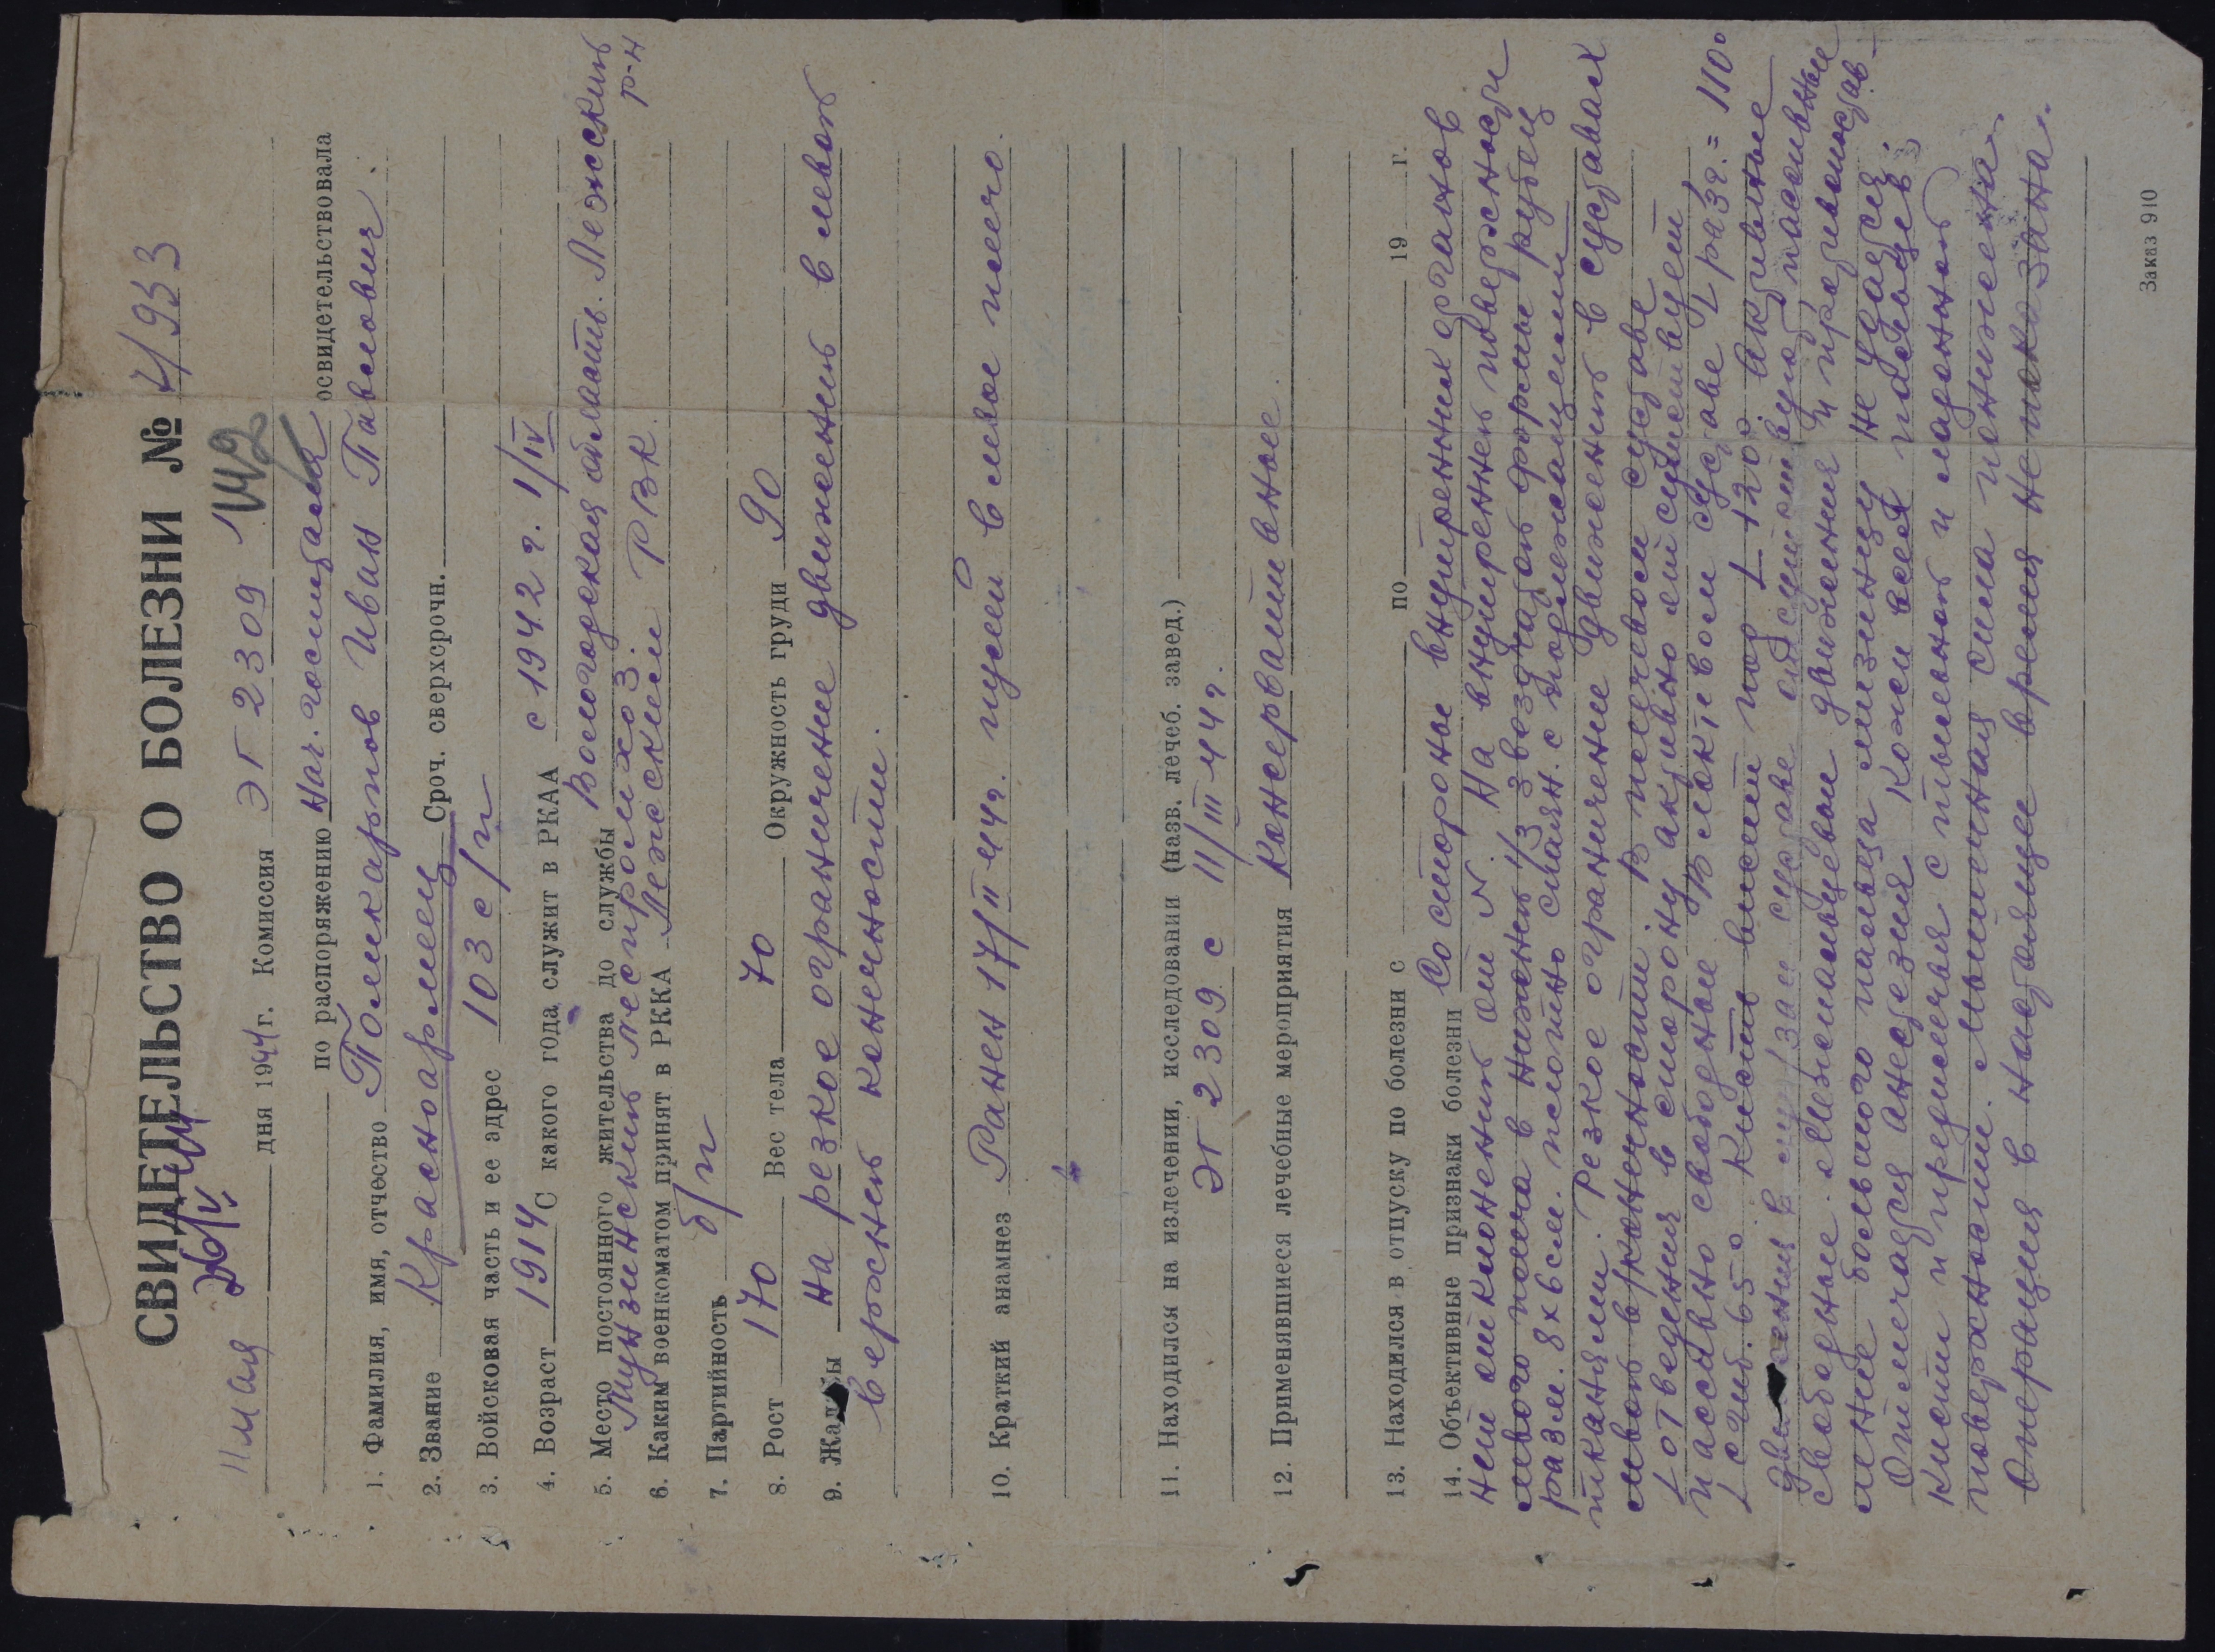 СВИДЕТЕЛЬСТВО О БОЛЕЗНИ № 4/933
11 мая дня 1944 г. Комиссия ЭГ 2309
по распоряжению Нач. госпиталя освидетельствовала
1. Фамилия, имя, отчество Поликарпов Иван Павлович.
2. Звание Красноармеец Сроч. сверхсрочн.
3. Войсковая часть и ее адрес 103 с/п
4. Возраст 1914 С какого года служит в РКАА с 1942 г. 1/IV
5. Место постоянного жительства до службы Вологодская область. Лежский р-н
леспромхоз.
6. Каким военкоматом принят в РККА Лежским РВК.
7. Партийность б/п
8. Рост 170 Вес тела 70 Окружность груди 90
9. Жалобы на резкое ограничение движений в левой
верхней конечности.
10. Краткий анамнез Ранен 17/II 44г. пулей в левое плечо.
11. Находился на излечении, исследовании (назв. лечеб. завед.)
ЭГ 2309 с 11/III 44г.
12. Применявшиеся лечебные мероприятия Консервативное.
13. Находился в отпуску по болезни с по 19 г.
14. Объективные признаки болезни Со стороны внутренних органов
нет отклонений от N. На внутренней поверхности
левого плеча в нижней 1/3 звездчатой формы рубец
разм. 8х6 см. плотно спаян. с подлежащими
тканями. Резкое ограничение движений в суставах
левой в/конечности. В плечевом суставе
L отведения в сторону активно отсутствует
пассивно свободное. В локтевом суставе L разг. = 110°
L сгиб. 65°. Кисть висит под L 120°. Активные
движения в суставе отсутствуют, пассивные
свободные. Межпальцевые движения и противопостав-
ление большого пальца мизинцу не удается.
Отмечается анестезия кожи всех пальцев,
кисти и предплечья с тыльной и ладонной
поверхности. Мышечная сила понижена.
Операция в настоящее время не показана.
Заказ 910